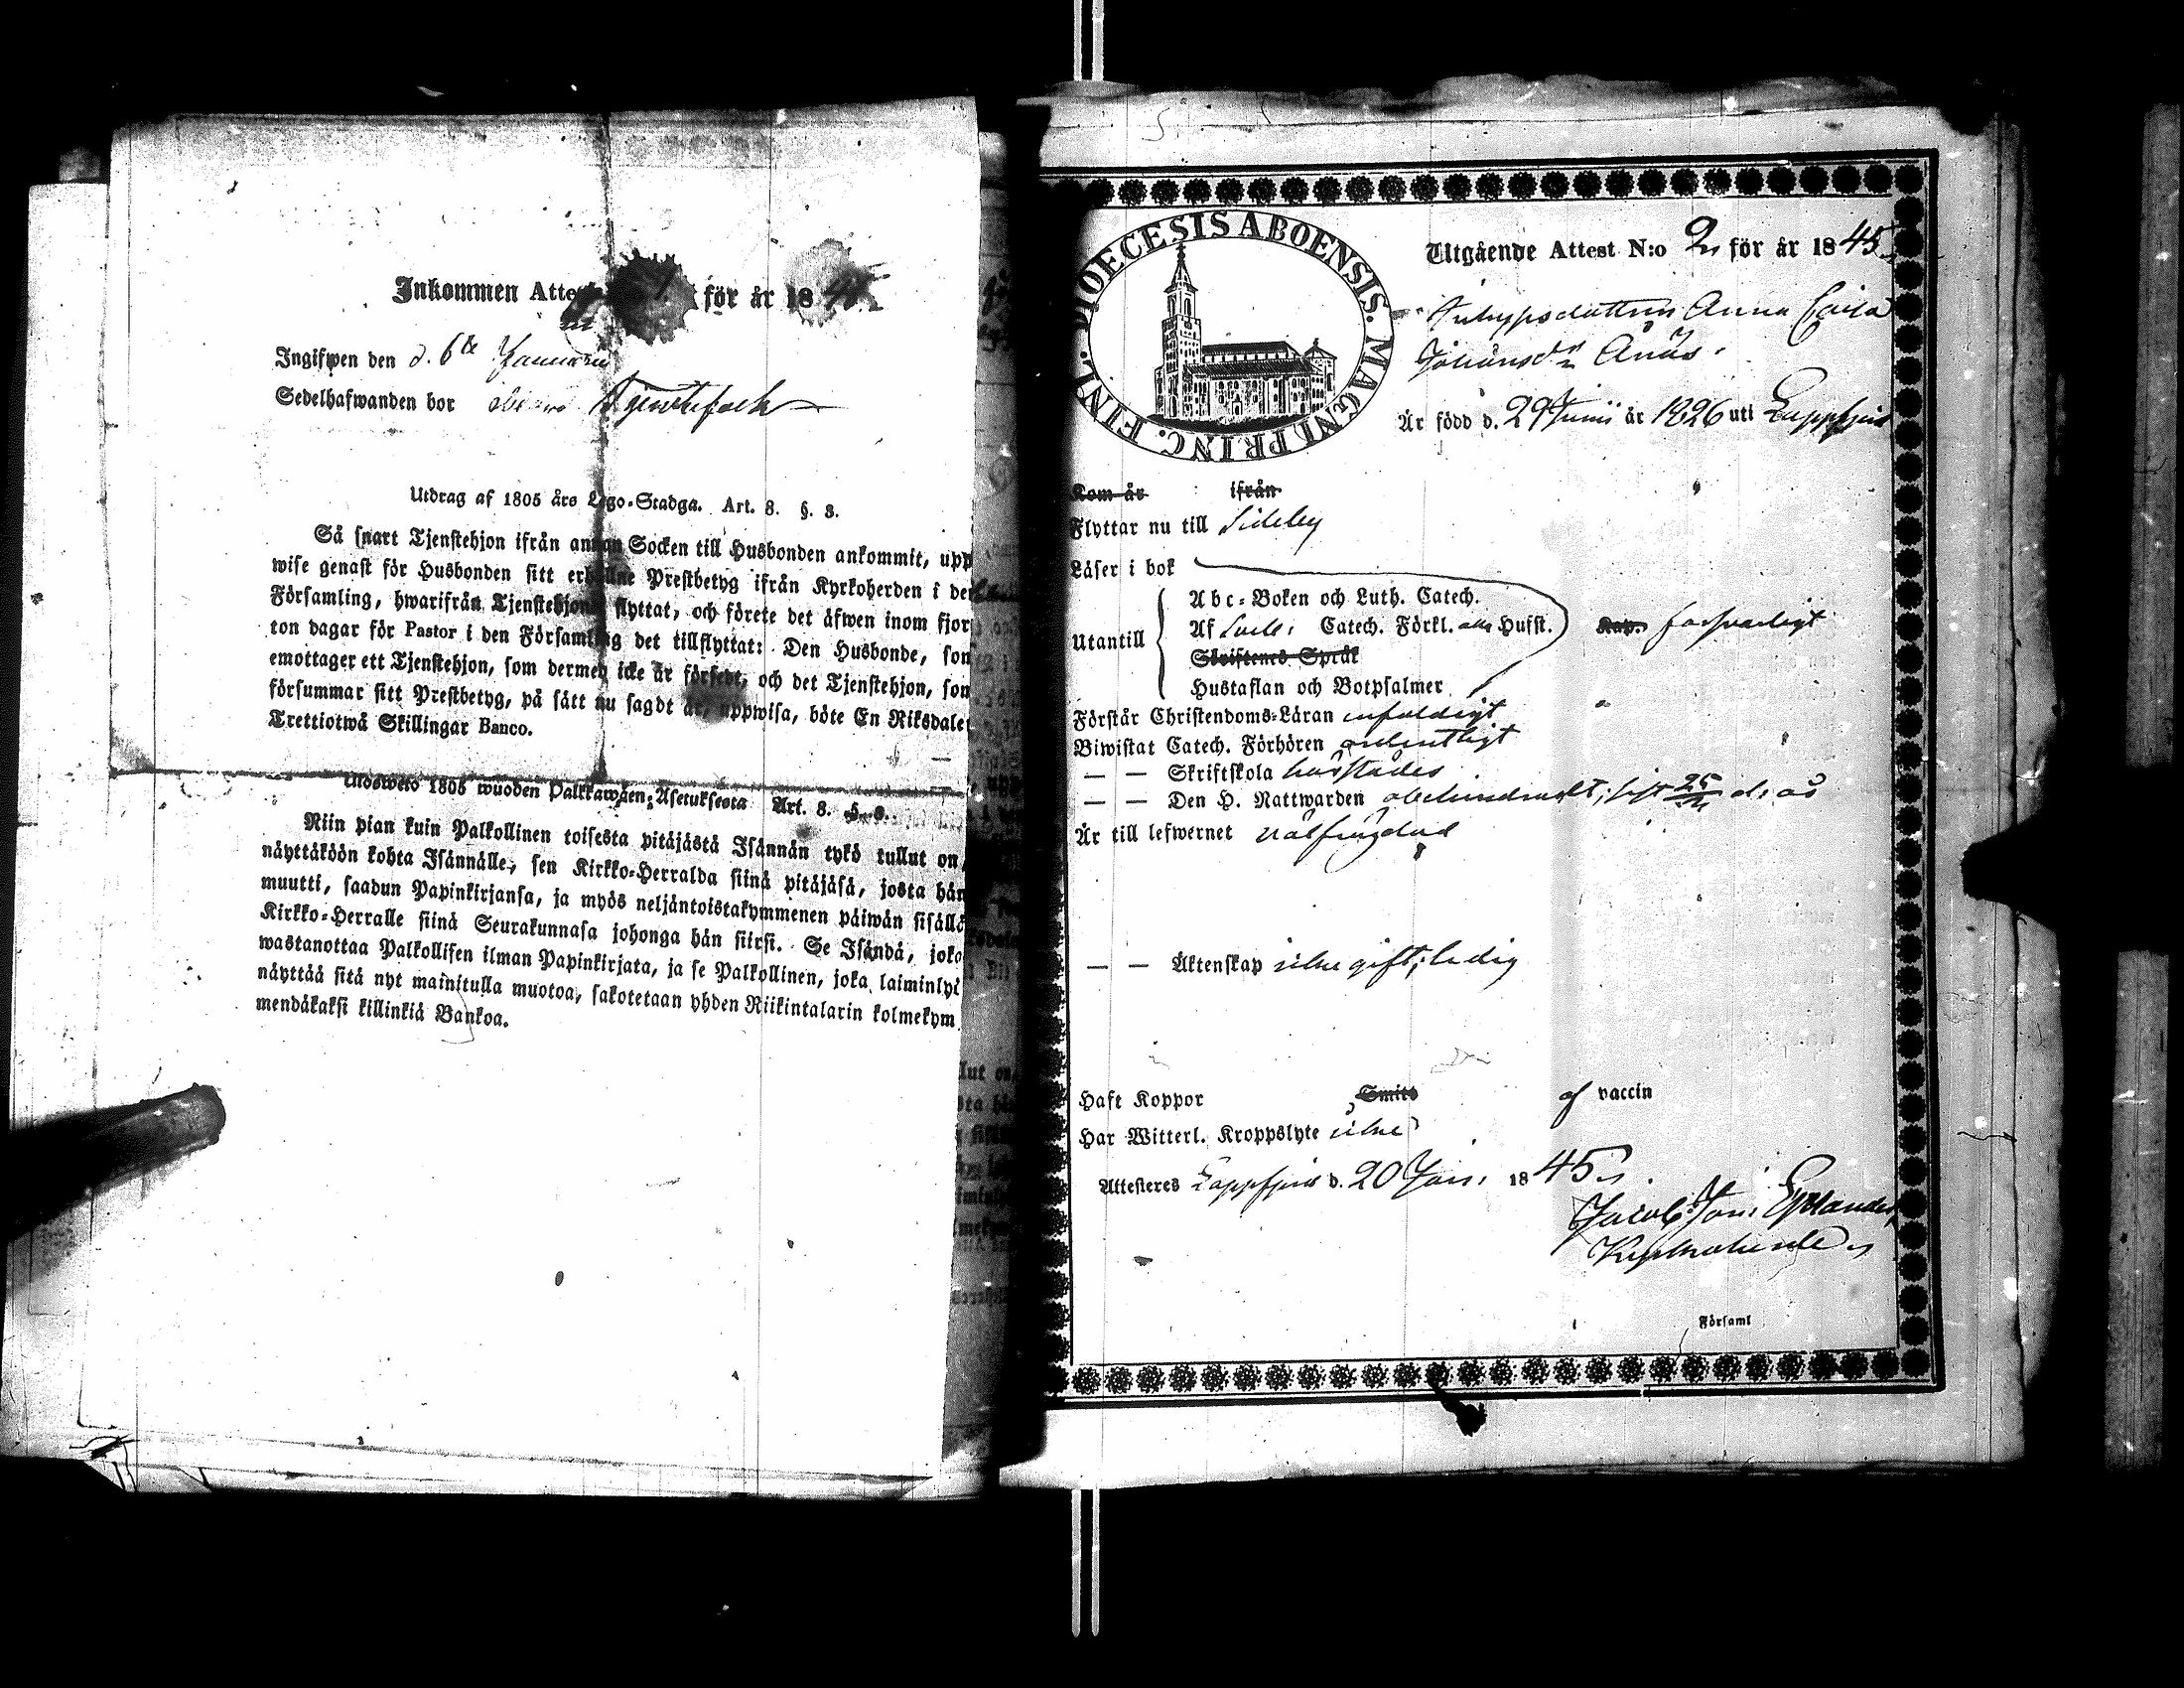 Inkommen Attest för år 18
Ingifwen den d. 6te Januarii
Sedelhafwanden bor
Utdrag af 1805 års Lego-Stadga. Art. 8. §. 3.
Så snart Tjenstehjon ifrån annan Socken till Husbonden ankommit, upp
wise genast för Husbonden sitt erhållne Prestbetyg ifrån Kyrkoherden i den
Församling, hwarifrån Tjenstehjonet flyttat, och förete det äfwen inom fjor
ton dagar för Pastor i den Församling det tillflyttat: Den Husbonde, som
emottager ett Tjenstehjon, som dermed icke är försedt, och det Tjenstehjon, som
försummar sitt Prestbetyg, på sätt nu sagdt är, uppwisa, böte En Riksdaler
Trettiotwå Skillingar Banco.
Ulosweto 1805 wuoden Palkkawäen-Asetuksesta Art. 8. §. 3.
Niin pian kuin Palkollinen toisesta pitäjästä Isännän tykö tullut on,
näyttäköön kohta Isännälle, sen Kirkko-Herralda siinä pitäjäsä, josta hän
muutti, saadun Papinkirjansa, ja myös neljäntoistakymmenen päiwän sisällä
Kirkko-Herralle siinä Seurakunnasa johonga hän siirsi. Se Isändä, joka
wastanottaa Palkollisen ilman Papinkirjata, ja se Palkollinen, joka laiminlyö
näyttää sitä nyt mainitulla muotoa, sakotetaan yhden Riikintalarin kolmekym
mendäkaksi killinkiä Bankoa.
DIOECESIS ABOENSIS. MAGNI. PRINC. FINL.
Utgående Attest N:o 2 för år 1845.
Anna Caisa
Johansdr Ånäs.
Är född d. 29 Junii år 1826 uti Lappfjerd
Kom år ifrån
Flyttar nu till Sideby
Läser i bok
Utantill
Abc-Boken och Luth. Catech.
Af Catech. Förkl. Husft. Kap. försvarligt
Skriftenes Språk
Hustaflan och Botpsalmer
Förstår Christendoms-Läran enfaldigt
Biwistat Catech. Förhören ordentligt
— — Skriftskola härstädes
— — Den H. Nattwarden obehindradt; sist 25 d. år
Är till lefwernet välfrägdad
— — Äktenskap icke gift; ledig
Haft Koppor Smitt af vaccin
Har Witterl. Kroppslyte icke
Attesteres Lappfjerd d. 20 Jan. 1845.
Jacob Joh.
Kyrkoherde
Församl